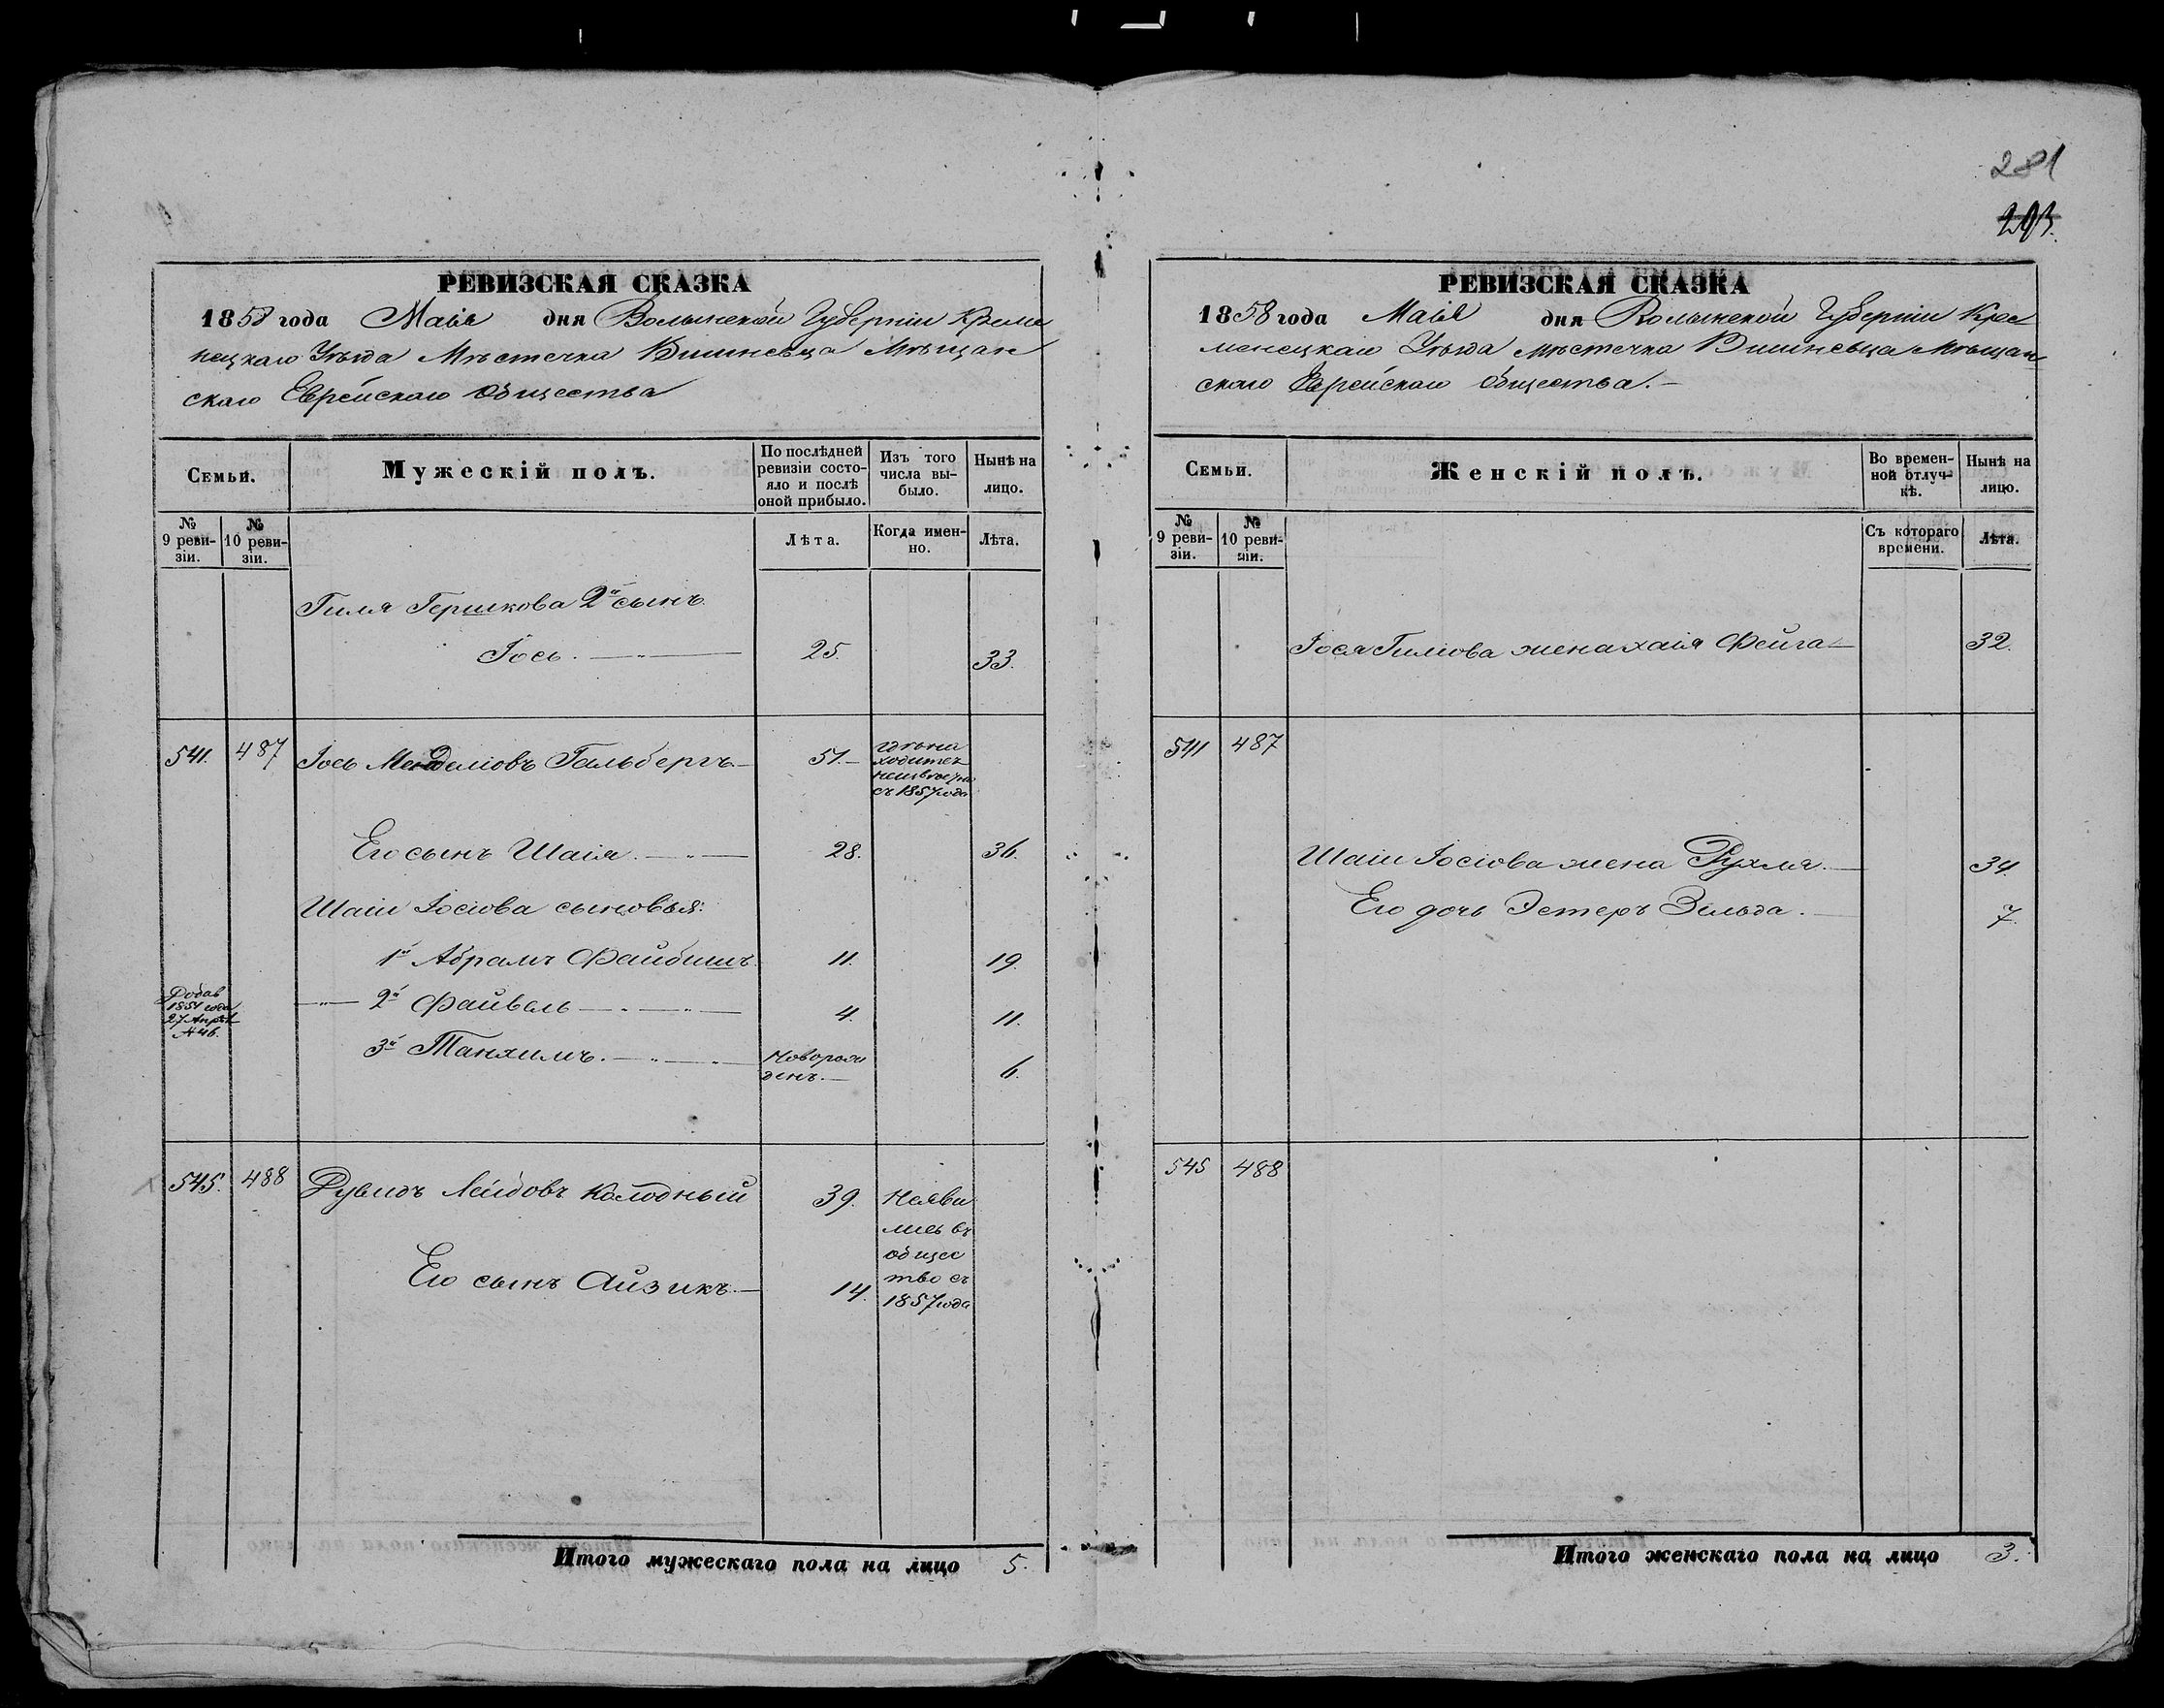 281
203.
РЕВИЗСКАЯ СКАЗКА
1858 года Маія дня Волынской Губерніи Креме
нецкаго Уѣзда Мѣстечка Вишневца Мѣщан
скаго Еврейскаго Общества
Семьи.
Мужескій полъ.
По послѣдней ревизіи состояло и послѣ оной прибыло.
Изъ того числа выбыло.
Нынѣ на лицо.
№ 9 ревизіи.
№ 10 ревизіи.
Лѣта.
Когда именно.
Лѣта.
Гиля Гершкова 2й сынъ
Іось. —„— 25. 33.
541. 487 Іось Менделіовъ Гальбергъ.— 51.— гдѣ на
ходитсѧ
неизвѣстно
съ 1857 года
Его сынъ Шаія. —„— 28. 36.
Шаіи Іосіова сыновья:
1й Абрамъ Файбишъ. 11. 19.
Добав
1851 года
27 Апрѣл
№46.
—„— 2й Файвель —„—„— 4. 11.
3й Танхимъ. —„—„ Оноворож
денъ.— 6.
545. 488 Рувидъ Лейбовъ Колодный 39. Неяви
лись въ
общес
тво съ
1857 года
Его сынъ Айзикъ.— 14.
Итого мужескаго пола на лицо 5.
РЕВИЗСКАЯ СКАЗКА
1858 года Маія дня Волынской Губерніи Кре
менецкаго Уѣзда Мѣстечка Вишневца Мѣщан
скаго Еврейскаго Общества.—
Семьи.
Женскій полъ.
Во временной отлучкѣ.
Нынѣ на лицо.
№ 9 ревизіи.
№ 10 ревизіи.
Съ котораго времени.
Лѣта.
Іося Гиліова жена Хаія Фейга— 32.
541 487
Шаіи Іосіова жена Рухля.— 34.
Его дочь Эстеръ Зельда.— 7.
545 488
Итого женскаго пола на лицо 3.